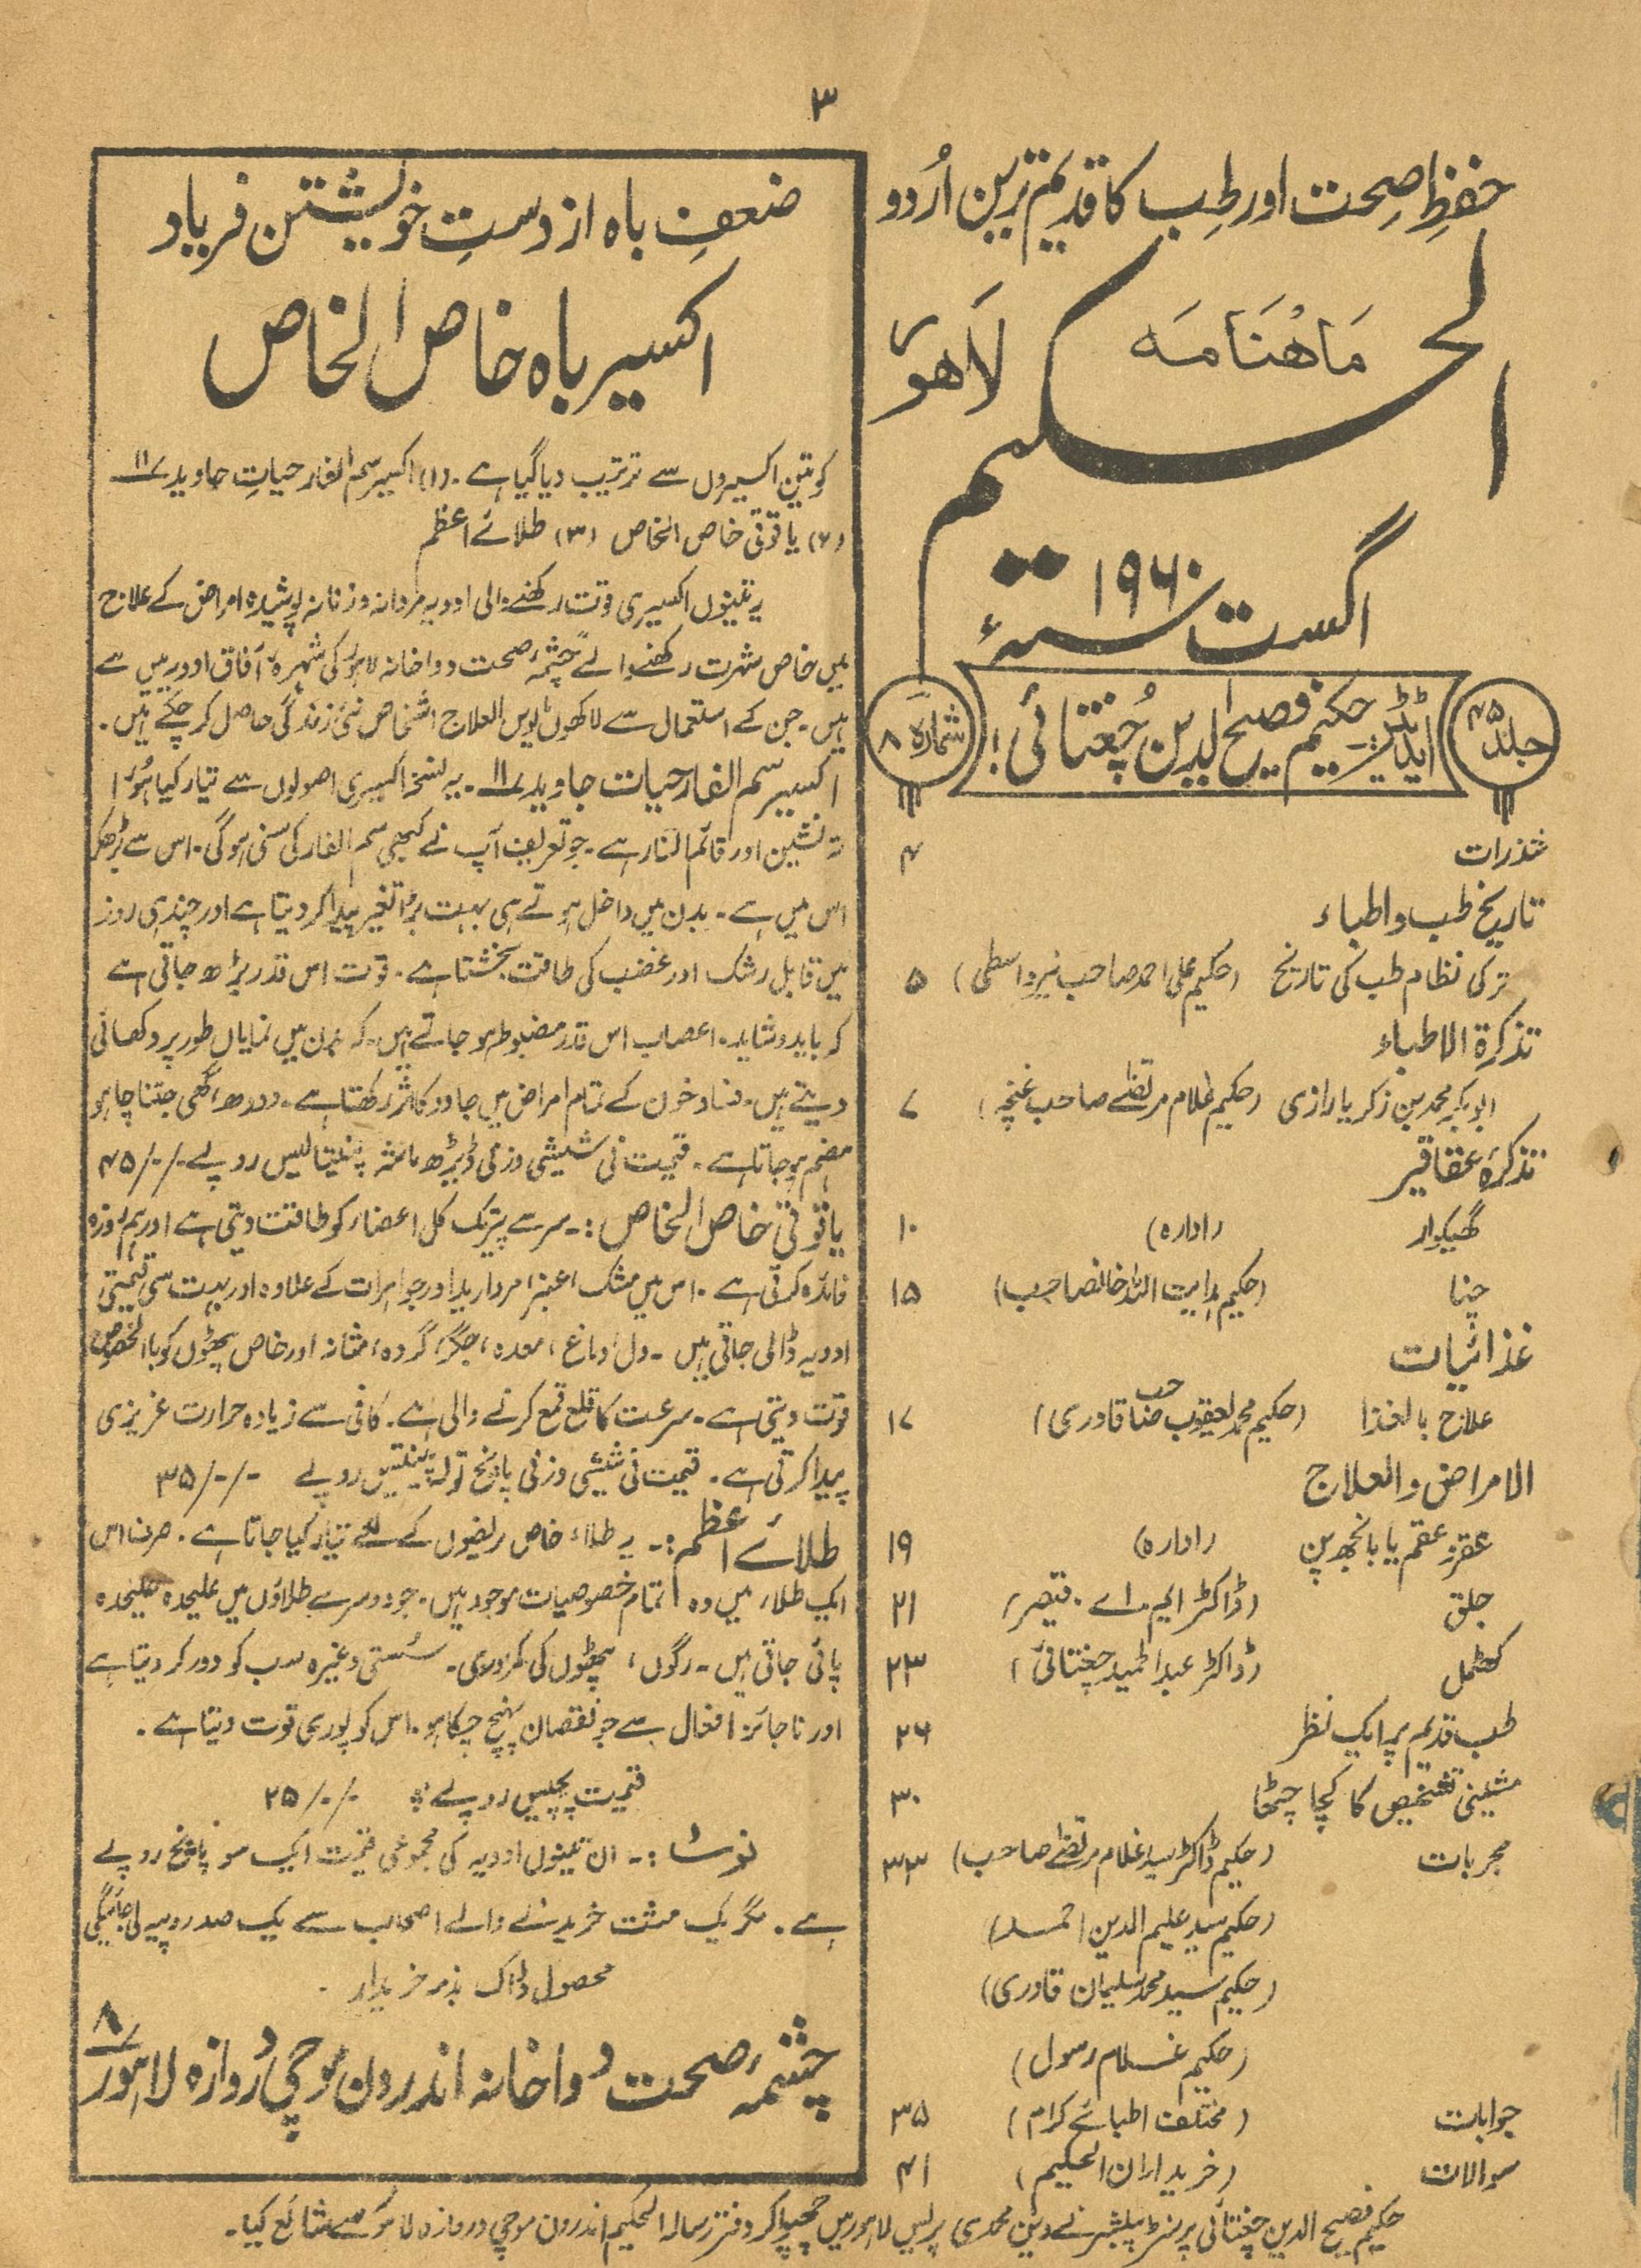 ۳
حفظِ صِحت اور طِب کا قدیم ترین اُردو
مَاھْنَامَہ
الحکیم
لَاھور
اگست ۱۹۶۰ء
جلد ۴۵
ایڈیٹر:۔ حکیم فصیح الدین چُغتائی!
شمارہ ۸
شذرات ۴
تاریخ طب و اطباء
ترکی نظام طب کی تاریخ (حکیم علی احمد صاحب نیر واسطی) ۵
تذکرۃ الاطباء
ابوبکر محمد بن زکریا رازی (حکیم غلام مرتضےٰ صاحب غنچہ) ۷
تذکرہ عقاقیر
گھیکوار (ادارہ) ۱۰
چنا (حکیم ہدایت اللہ خانصاحب) ۱۵
غذائیات
علاج بالغذا (حکیم محمد یعقوب صاحب قادری) ۱۷
الامراض والعلاج
عقرز عقم یا بانجھ پن (ادارہ) ۱۹
جلق (ڈاکٹر ایم۔ اے۔ قیصر) ۲۱
کھٹمل (ڈاکٹر عبدالحمید چغتائی) ۲۳
طب قدیم پر ایک نظر ۲۶
مشینی تشخیص کا کچا چٹھا ۳۰
مجربات (حکیم ڈاکٹر سید غلام مرتضےٰ صاحب) ۳۳
(حکیم سید علیم الدین احمد)
(حکیم سید محمد سلیمان قادری)
(حکیم غلام رسول)
جوابات (مختلف اطبائے کرام) ۳۵
سوالات (خریداران الحکیم) ۴۱
ضعفِ باہ از دستِ خویشتن فریاد
اکسیر باہ خاص الخاص
کو تین اکسیروں سے ترتیب دیا گیا ہے۔ (۱) اکسیر سم الفار حیاتِ جاوید ۱۱/۷
(۲) یاقوتی خاص الخاص (۳) طلائے اعظم
یہ تینوں اکسیری قوت رکھنے والی ادویہ مردانہ و زنانہ پوشیدہ امراض کے علاج
میں خاص شہرت رکھنے والے چشمۂ صحت دواخانہ لاہور کی شہرۂ آفاق ادویہ میں سے
ہیں۔ جن کے استعمال سے لاکھوں مایوس العلاج اشخاص نئی زندگی حاصل کر چکے ہیں۔
اکسیر سم الفار حیات جاوید ۱۱/۷۔ یہ نسخہ اکسیری اصولوں سے تیار کیا ہُوا
تہ نشین اور قائم النار ہے۔ جو تعریف آپ نے کبھی سم الفار کی سنی ہوگی۔ اس سے بڑھکر
اس میں ہے۔ بدن میں داخل ہوتے ہی بہت بڑا تغیر پیدا کر دیتا ہے اور چند ہی روز
میں قابل رشک اور غضب کی طاقت بخشتا ہے۔ قوت اس قدر بڑھ جاتی ہے
کہ باید و شاید۔ اعصاب اس قدر مضبوط ہو جاتے ہیں۔ کہ بدن میں نمایاں طور پر دکھائی
دیتے ہیں۔ فساد خون کے تمام امراض میں جادو کا اثر رکھتا ہے۔ دودھ، گھی جتنا چاہو
ہضم ہو جاتا ہے۔ قیمت فی شیشی وزنی ڈیڑھ ماشہ پینتالیس روپے ۴۵/-/-
یاقوتی خاص الخاص:۔ سر سے پیر تک کل اعضاء کو طاقت دیتی ہے اور ہم روزہ
فائدہ کرتی ہے۔ اس میں مشک، عنبر، مروارید اور جواہرات کے علاوہ اور بہت سی قیمتی
ادویہ ڈالی جاتی ہیں۔ دل، دماغ، معدہ، جگر، گردہ، مثانہ اور خاص پٹھوں کو بالخصوص
قوت دیتی ہے۔ سرعت کا قلع قمع کرنے والی ہے۔ کافی سے زیادہ حرارت غریزی
پیدا کرتی ہے۔ قیمت فی شیشی وزنی پانچ تولہ پینتیس روپے ۳۵/-/-
طلائے اعظم:۔ یہ طلاء خاص مریضوں کے لئے تیار کیا جاتا ہے۔ صرف اس
ایک طلاء میں وہ تمام خصوصیات موجود ہیں۔ جو دوسرے طلاؤں میں علیحدہ علیحدہ
پائی جاتی ہیں۔ رگوں، پٹھوں کی کمزوری۔ سُستی وغیرہ سب کو دور کر دیتا ہے
اور ناجائز افعال سے جو نقصان پہنچ چکا ہو۔ اس کو پوری قوت دیتا ہے۔
قیمت پچیس روپے ۲۵/-/-
نوٹ:۔ ان تینوں ادویہ کی مجموعی قیمت ایک سو پانچ روپے
ہے۔ مگر یک مشت خریدنے والے اصحاب سے یک صد روپیہ لی جائیگی
محصول ڈاک بذمہ خریدار۔
چشمۂ صحت دواخانہ اندرون موچی دروازہ لاہور ۸/۷
حکیم فصیح الدین چغتائی پرنٹر پبلشر نے دین محمدی پریس لاہور میں چھپوا کر دفتر رسالہ الحکیم اندرون موچی دروازہ لاہور سے شائع کیا۔